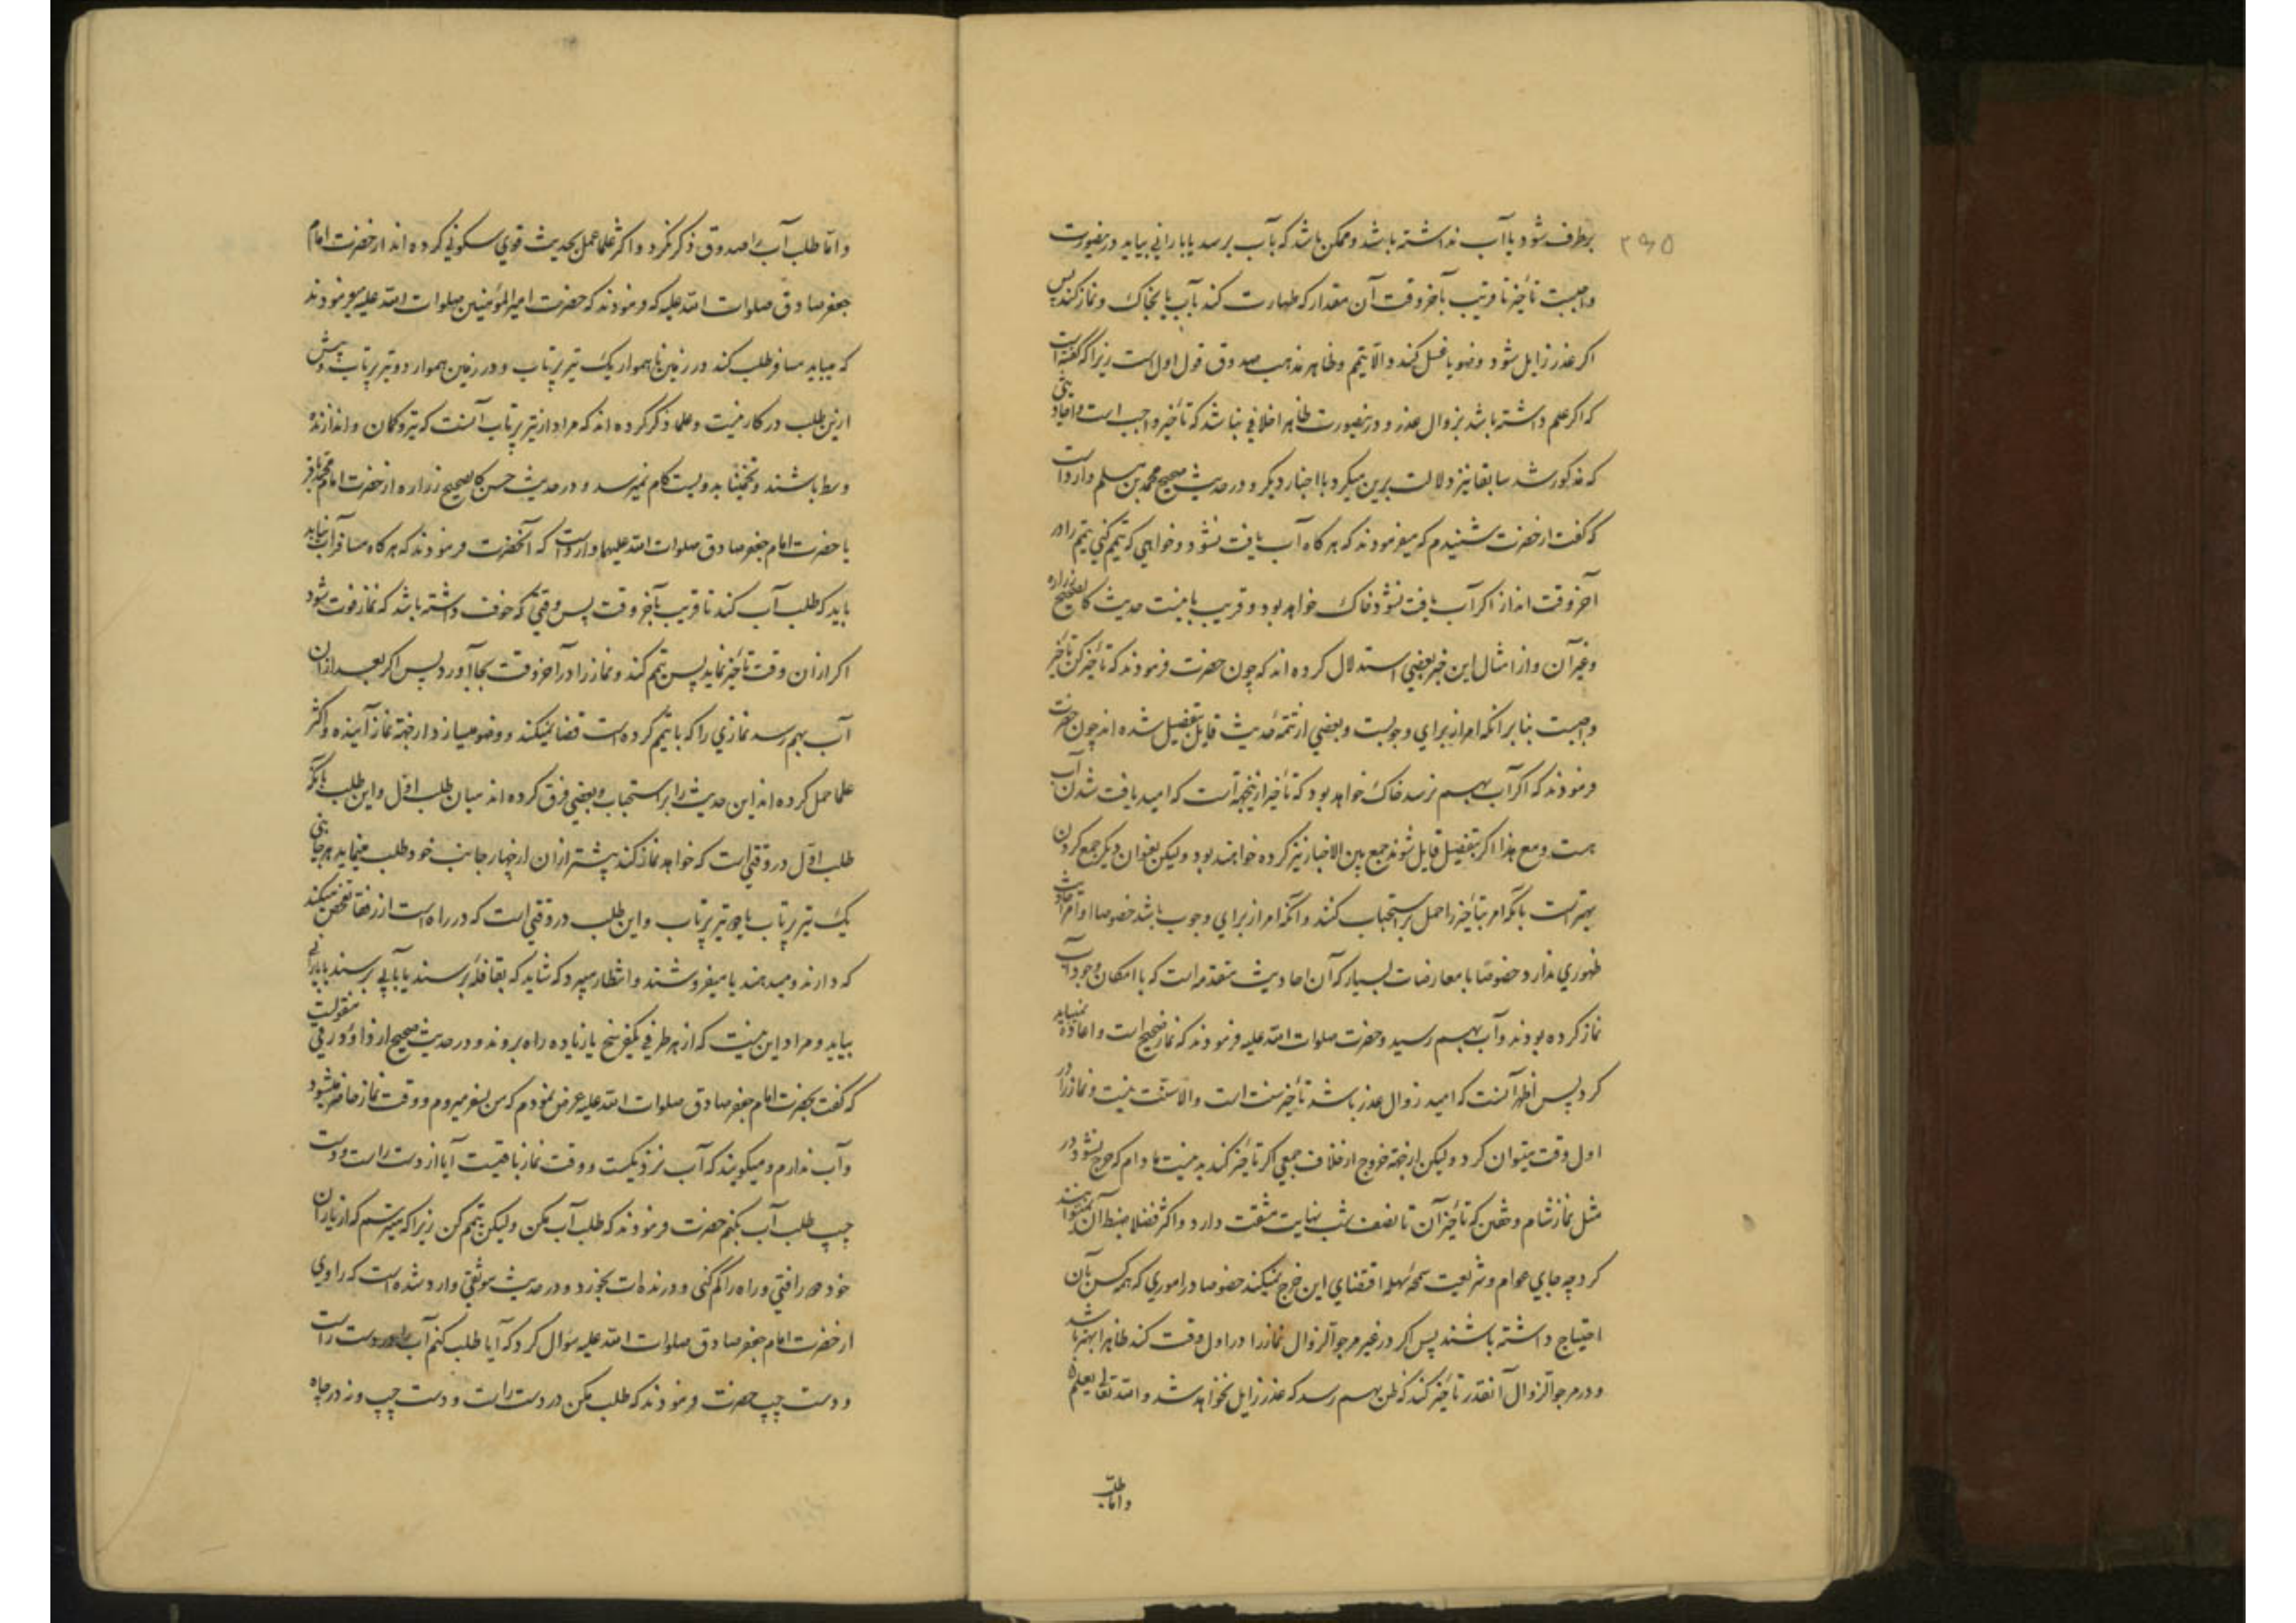 ۲۹۵
برطرف شود یا آب نداشته باشد و ممکن باشد که بآب برسد یا بارانی بیاید درینصورت
واجبست تأخیر تا قریب بآخر وقت آن مقدار که طهارت کند بآب یا بخاک و نماز کند پس
اکر عذر زایل شود وضو یا غسل کند و الّا تیمّم و ظاهر مذهب صدوق قول اول است زیرا که گفته است
که اکر علم داشته باشد بزوال عذر و درینصورت ظاهرا خلافی نباشد که تأخیر واجب است و احادیثی
که مذکور شد سابقا نیز دلالت برین میکرد با اخبار دیکر و در حدیث صحیح محمد بن مسلم وارد است
که گفت از حضرت شنیدم که میفرمودند که هر کاه آب یافت نشود و خواهی که تیمم کنی تیمم را در
آخر وقت انداز اکر آب یافت نشود خاک خواهد بود و قریب باینست حدیث کالصحیح زراره
و غیر آن و از امثال این خبر بعضی استدلال کرده اند که چون حضرت فرمودند که تأخیر کن تأخیر
واجبست بنا بر انکه امر از برای وجوبست و بعضی از تتمّه حدیث قایل بتفصیل شده اند چون حضرت
فرمودند که اکر آب بهم نرسد خاک خواهد بود که تأخیر ازینجهة است که امید یافت شدن آب
هست و مع هذا اکر بتفصیل قایل شوند جمع بین الاخبار نیز کرده خواهند بود و لیکن بعنوان دیکر جمع کردن
بهتر است بانکه امر بتأخیر را حمل بر استحباب کنند و انکه امر از برای وجوب باشد خصوصا اوامر احادیث
ظهوری ندارد خصوصا با معارضات بسیار که آن احادیث متقدمه است که با امکان وجود آب
نماز کرده بودند و آب بهم رسید و حضرت صلوات الله علیه فرمودند که نماز صحیح است و اعاده نمیباید
کرد پس أظهر آنست که امید زوال عذر باشد تأخیر سنت است و الا سنّت نیست و نماز را در
اول وقت میتوان کرد و لیکن از جهة خروج از خلاف جمعی اکر تأخیر کند بد نیست مادام که حرج نشود در
مثل نماز شام و خفتن که تأخیر آن تا نصف شب نهایت مشقت دارد و اکثر فضلا ضبط آن نمیتوانند
کرد چه جای عوام و شریعت سمحهٔ سهله اقتضای این حرج نمیکند خصوصا در اموری که همه کس بآن
احتیاج داشته باشند پس اکر در غیر مرجوّ الزوال نماز را در اول وقت کند ظاهرا بهتر باشد
و در مرجوّ الزوال آنقدر تأخیر کند که ظن بهم رسد که عذر زایل نخواهد شد و الله تعالی یعلم
و اما طلب
و امّا طلب آب را صدوق ذکر نکرد و اکثر علما عمل بحدیث قوی سکونی کرده اند از حضرت امام
جعفر صادق صلوات الله علیه که فرمودند که حضرت امیر المؤمنین صلوات الله علیه میفرمودند
که میباید مسافر طلب کند در زمین ناهموار یک تیر پرتاب و در زمین هموار دو تیر پرتاب و بیش
ازین طلب در کار نیست و علما ذکر کرده اند که مراد از تیر پرتاب آنست که تیر و کمان و اندازنده
وسط باشند و تخمینا بدویست کام نمیرسد و در حدیث حسن کالصحیح زراره از حضرت امام محمد باقر
یا حضرت امام جعفر صادق صلوات الله علیهما وارد است که آنحضرت فرمودند که هر کاه مسافر آب نیابد
باید که طلب آب کند تا قریب بآخر وقت پس وقتی که خوف داشته باشد که نماز فوت شود
اکر از آن وقت تأخیر نماید پس تیمم کند و نماز را در آخر وقت بجا آورد پس اکر بعد از آن
آب بهم رسد نمازی را که با تیمم کرده است قضا نمیکند و وضو میسازد از جهة نماز آینده و اکثر
علما حمل کرده اند این حدیث را بر استحباب و بعضی فرق کرده اند میان طلب اوّل و این طلب بانکه
طلب اوّل در وقتی است که خواهد نماز کند پیشتر از آن از چهار جانب خود طلب مینماید هر جانبی
یک تیر پرتاب یا دو تیر پرتاب و این طلب در وقتی است که در راه است از رفقا تفحص میکند
که دارند و میدهند یا میفروشند و انتظار میبرد که شاید که بقافلهٔ برسند یا بآبی برسند یا بارانی
بیاید و مراد این نیست که از هر طرفی یکفرسخ یا زیاده راه بروند و در حدیث صحیح از داود رقی منقولست
که گفت بحضرت امام جعفر صادق صلوات الله علیه عرض نمودم که من بسفر میروم و وقت نماز حاضر میشود
و آب ندارم و میکویند که آب نزدیکست و وقت نماز باقیست آیا از دست راست و دست
چپ طلب آب بکنم حضرت فرمودند که طلب آب مکن و لیکن تیمم کن زیرا که میترسم که از یاران
خود دور افتی و راه را کم کنی و درنده ات بخورد و در حدیث موثقی وارد شده است که راوی
از حضرت امام جعفر صادق صلوات الله علیه سؤال کرد که آیا طلب کنم آب را در دست راست
و دست چپ حضرت فرمودند که طلب مکن در دست راست و دست چپ و نه در چاه